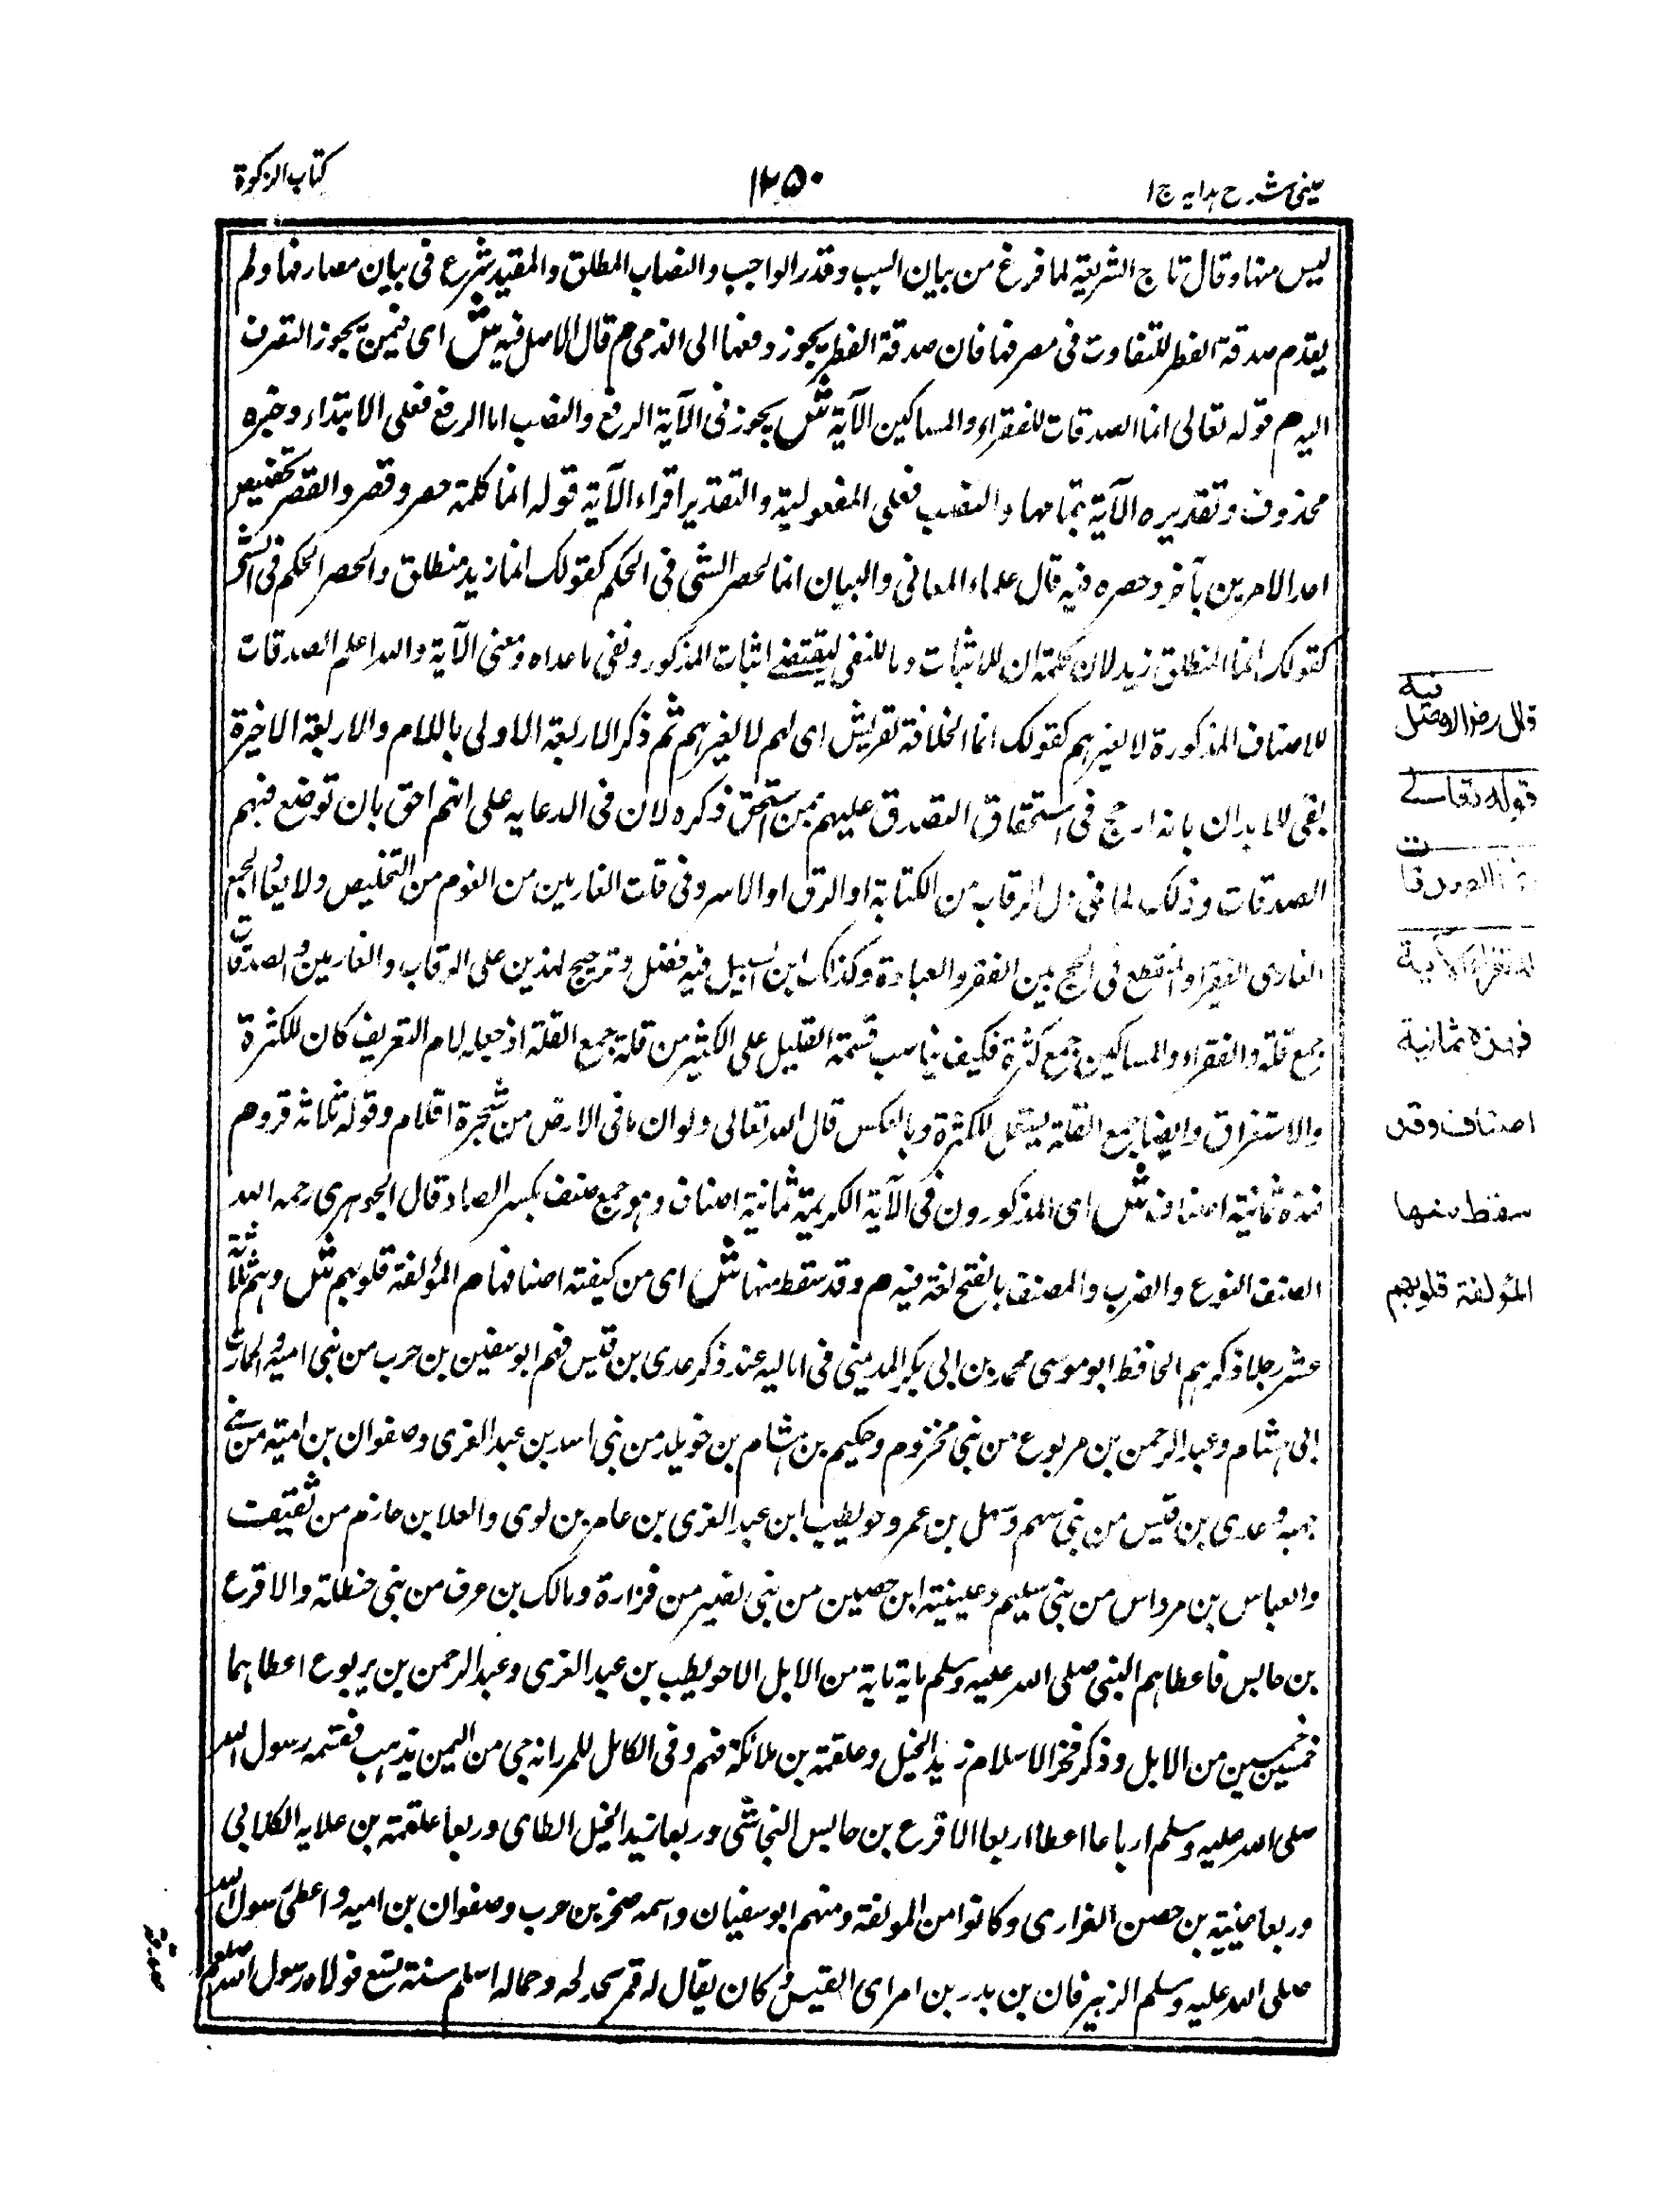 عینی شرح ہدایہ ج ا
١٢٥٠
کتاب الزکوة
لیس منها وقال تاج الشریعة لما فرغ من بیان السبب وقدر الواجب والنصاب المطلق والمقید شرع فی بیان مصارفها ولم
یقدم صدقة الفطر للتفاوت فی مصرفها فان صدقة الفطر یجوز دفعها الی الذمی م قال الاصل فیه ش ای فیمن یجوز التصرف
الیه م قوله تعالی انما الصدقات للفقراء والمساکین الآیة ش یجوز فی الآیة الرفع والنصب اما الرفع فعلی الابتداء وخبره
محذوف وتقدیره الآیة بتمامها والنصب فعلی المفعولیة والتقدیر اقراء الآیة قوله انما کلمة حصر وقصر والقصر تخصیص
احد الامرین بآخر وحصره فیه قال علماء المعانی والبیان انما لحصر الشی فی الحکم کقولک انما زید منطلق والحصر الحکم فی الشی
کقولک انما المنطلق زید لان کلمة ان للاثبات وما للنفی لیقتضے اثبات المذکور ونفی ماعداه ومعنی الآیة والله اعلم الصدقات
للاصناف المذکورة لا لغیرهم کقولک انما الخلافة لقریش ای لهم لا لغیرهم ثم ذکر الاربعة الاولی باللام والاربعة الاخیرة
بفی للایدان بانه ارجح فی استحقاق التصدق علیهم ممن استحق ذکره لان فی الدعایه علی انهم احق بان توضع فیهم
الصدقات وذلک لما فی الرقاب من الکتابة او الرق او الاسر وفی الغارمین من الغرم من التخلیص ولا الجمع
الغازی الفقیر او المنقطع فی الحج بین الفقر والعبادة وکذلک ابن السبیل فیه فضل وترجیح لهذین علی الرقاب والغارمین والصدقات
جمع قلة والفقراء والمساکین جمع کثرة فکیف یناسب قسمة القلیل علی الکثیر من قلة جمع القلة اذ حیله لام التعریف کان للکثرة
والاستغراق وایضا جمع القلة یستعمل للکثرة وبالعکس قال الله تعالی ولو ان ما فی الارض من شجرة اقلام وقوله ثلاثة قروء م
فهذه ثمانیة اصناف ش ای المذکورون فی الآیة الکریمة ثمانیة اصناف وهو جمع صنف بکسر الصاد قال الجوهری رحمه الله
الصنف النوع والضرب والصنف بالفتح لغة فیه م وقد سقط منها ش ای من کیفته اصنافها م المؤلفة قلوبهم ش وهم ثلاثة
عشر رجلا ذکرهم الحافظ ابو موسی محمد بن ابی بکر المدینی فی امالیه عند ذکر عدی بن قیس فهم ابو سفین بن حرب من بنی امیة والحارث
ابی هشام وعبد الرحمن بن مربوع من بنی مخزوم وحکیم بن هشام بن خویلد من بنی اسد بن عبد العزی وصفوان بن امیة من بنی
جمه وعدی بن قیس من بنی سهم وسهل بن عمر وحویطب ابن عبد العزی بن عامر بن لوی والعلا بن حازم من ثقیف
والعباس بن مرداس من بنی سلیم وعیینة ابن حصین من بنی نضیر من فزارة ومالک بن عوف من بنی حنظلة والاقرع
بن حابس فاعطاهم النبی صلی الله علیه وسلم مایة مایة من الابل الا حویطب بن عبد العزی وعبد الرحمن بن یربوع اعطاهما
خمسین خمسین من الابل وذکر فخر الاسلام زید الخیل وعلقمة بن علاثة فهم وفی الکامل للمبرد انه جی من الیمن بذهب فقسمه رسول الله
صلی الله علیه وسلم ارباعا اعطا اربعا الاقرع بن حابس وربعا زید الخیل الطای وربعا علقمة بن علایه الکلابی
وربعا عیینة بن حصن الفزاری وکانوا من المولفة ومنهم ابو سفیان واسمه صخر بن حرب وصفوان بن امیه واعطی رسول الله
صلی الله علیه وسلم الزبیرقان بن بدر بن امرای القیس کان یقال له قمر وجماله اسلم سنة تسع فولاه رسول الله صلعم
قال رض الاصل فیه
قوله تعالے
انما الصدقات
للفقراء الآیة
فهذه ثمانیة
اصناف وقد
سقط منها
المؤلفة قلوبهم